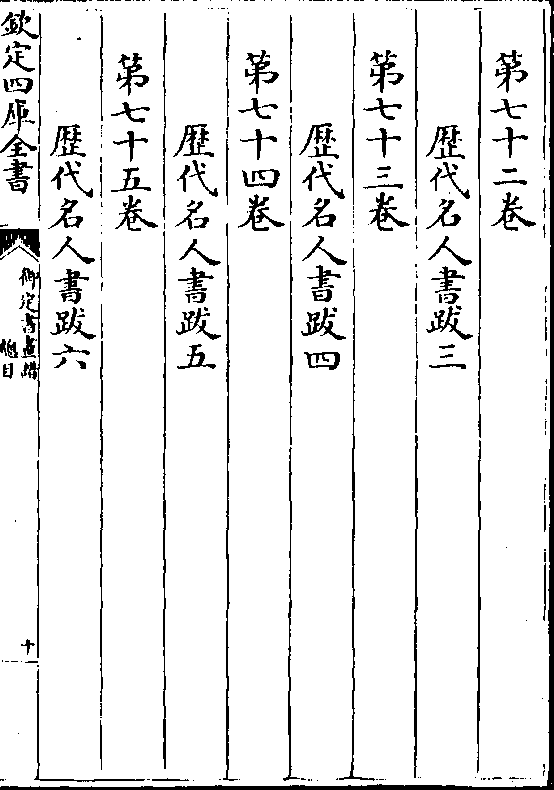 第七十二卷
歴代名人書跋三
第七十三卷
歴代名人書跋四
第七十四卷
歴代名人書跋五
第七十五卷
歴代名人書跋六
欽定四庫全書
御定書畫譜
總目
十